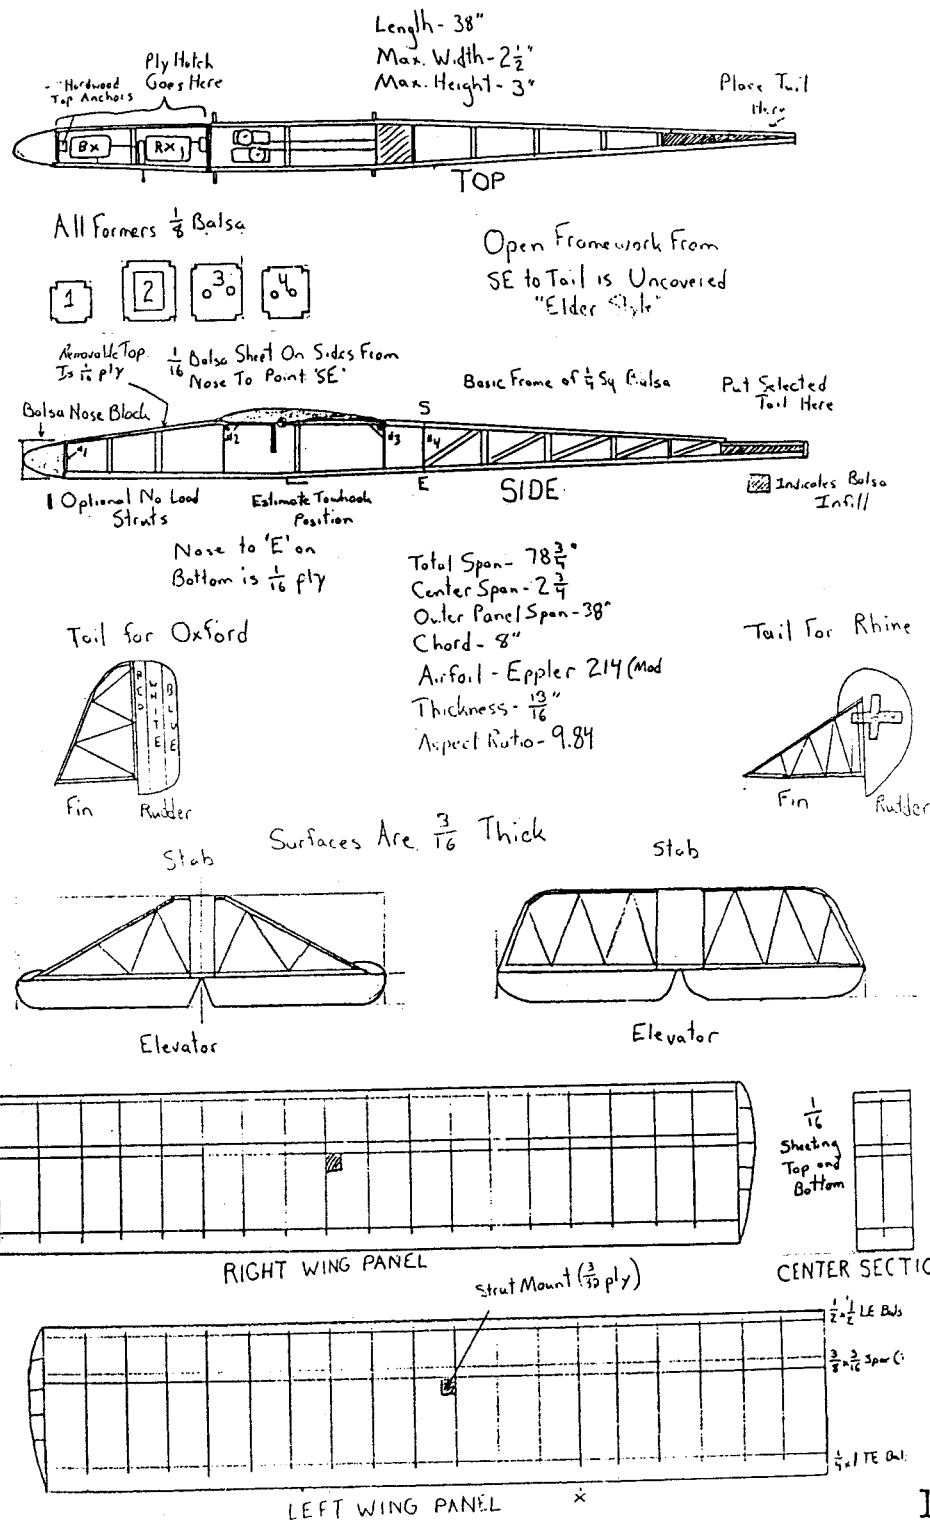 Length - 38"
Max. Width - 2 1/2"
Max. Height - 3"
Ply Hatch
Goes Here
Hardwood
Top Anchors
Place Tail
Here
Bx
Rx
TOP
All Formers 1/8 Balsa
Open Framework From
SE to Tail is Uncovered
"Elder Style"
1
2
3
4
Removable Top
Is 1/16 ply
1/16 Balsa Sheet On Sides From
Nose To Point 'SE'
Basic Frame of 1/4 Sq Balsa
Put Selected
Tail Here
Balsa Nose Block
S
#1
#2
#3
#4
E
SIDE
Optional No Load
Struts
Estimate Towhook
Position
Indicates Balsa
Infill
Nose to 'E' on
Bottom is 1/16 ply
Total Span - 78 3/4"
Center Span - 2 3/4
Outer Panel Span - 38"
Chord - 8"
Airfoil - Eppler 214 (Mod
Thickness - 13/16"
Aspect Ratio - 9.84
Tail for Oxford
RED
WHITE
BLUE
Fin
Rudder
Tail For Rhine
Fin
Rudder
Surfaces Are 3/16 Thick
Stab
Stab
Elevator
Elevator
1/16
Sheeting
Top and
Bottom
RIGHT WING PANEL
CENTER SECTIO
Strut Mount (3/32 ply)
1/2 x 1/2 LE Bals
3/8 x 3/16 Spar (
1/4 x 1 TE Bal
LEFT WING PANEL
x